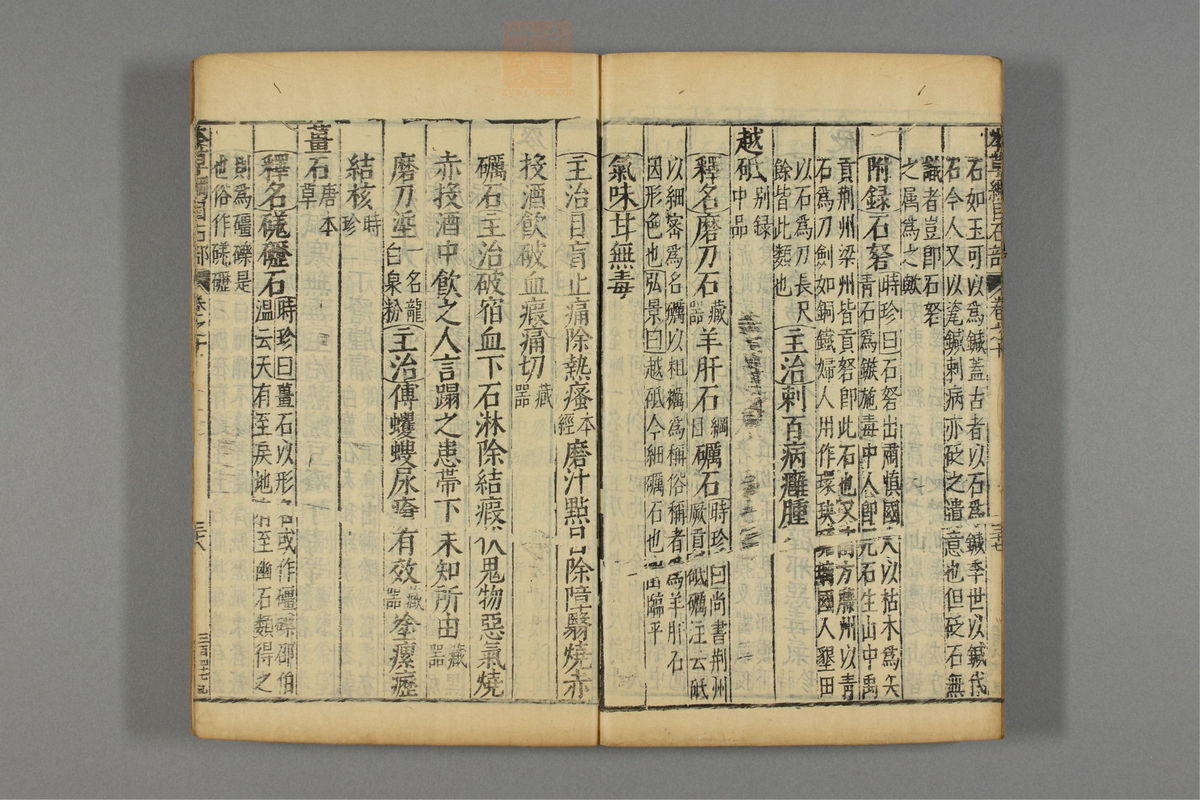 石如玉可以為鍼蓋古者以石為鍼季世以鍼代
石今人又以瓷鍼刺病亦砭之遺意也但砭石無
識者豈即石砮
之属為之歟
附録石砮時珍曰石砮出肅慎國人以枯木為矢
青石為鏃施毒中人即石生山中禹
貢荆州梁州皆貢砮即此石也又南方藤州以青
石為刀劍如銅鐵婦人用作環玦璃國人墾田
以石為刀長尺
餘皆此類也主治刺百病癰腫
越砥别録中品
釋名磨刀石藏器羊肝石綱目礪石時珍曰尚書荆州
厥貢砥礪注云砥
以細密為名礪以粗糲為稱俗稱者為羊肝石
因形色也弘景曰越砥今細礪石也出臨平
氣味甘無毒
主治目盲止痛除熱瘙本經磨汁點目除障翳燒赤
投酒飲破血瘕痛切藏器
礪石主治破宿血下石淋除結瘕伏鬼物惡氣燒
赤投酒中飲之人言蹋之患帶下未知所由藏器
磨刀垽一名龍白泉粉主治傅蠼螋尿瘡有效藏器塗瘰癧
結核時珍
薑石唐本草
釋名磽礓石時珍曰薑石以形名或作礓礫邵伯
溫云天有至戾地有至幽石類得之
則為礓礫是
也俗作磽礓
本草綱目石部 卷之十 三十八